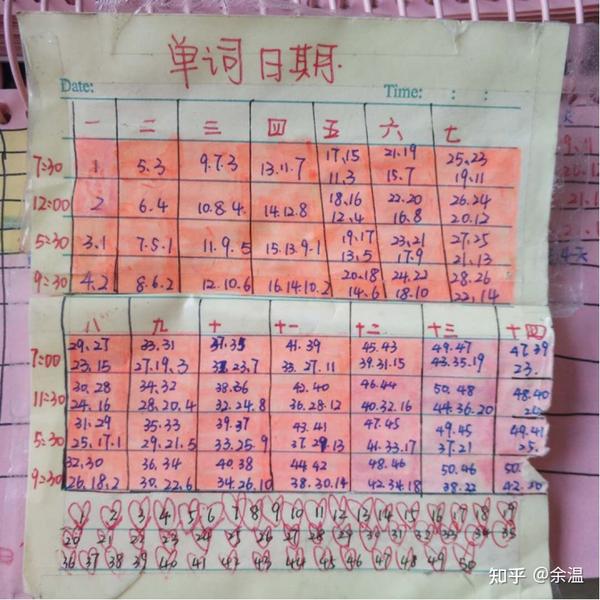 单词日期.
Date: Time: : :
一 二 三 四 五 六 七
7:30 1 5.3 9.7.3 13.11.7 17.15 21.19 25.23
11.3 15.7 19.11
12:00 2 6.4 10.8.4. 14.12.8 18.16 22.20 26.24
12.4 16.8 20.12
5:30 3.1 7.5.1 11.9.5 15.13.9.1 19.17 23.21 27.25
13.5 17.9 21.13
9:30 4.2 8.6.2 12.10.6 16.14.10.2 20.18 24.22 28.26
14.6 18.10 22.14
八 九 十 十一 十二 十三 十四
7:00 29.27 33.31 37.35 41.39 45.43 49.47 47.39
23.15 27.19.3 23.7 33.27.11 39.31.15 43.35.19 23.
11:30 30.28 34.32 38.36 42.40 46.44 50.48 48.40
24.16 28.20.4 32.24.8 36.28.12 40.32.16 44.36.20
5:30 31.29 35.33 39.37 43.41 47.45 49.45 49.41
25.17.1 29.21.5 33.25.9 37.29.13 41.33.17 37.21 25.
9:30 32.30 36.34 40.38 44.42 48.46 50.46 50.
26.18.2 30.22.6 34.26.10 38.30.14 42.34.18 38.22 42.
1 2 3 4 5 6 7 8 9 10 11 12 13 14 15 16 17 18 19
20 21 22 23 24 25 26 27 28 29 30 31 32 33 34 35
36 37 38 39 40 41 42 43 44 45 46 47 48 49 50
知乎 @余温